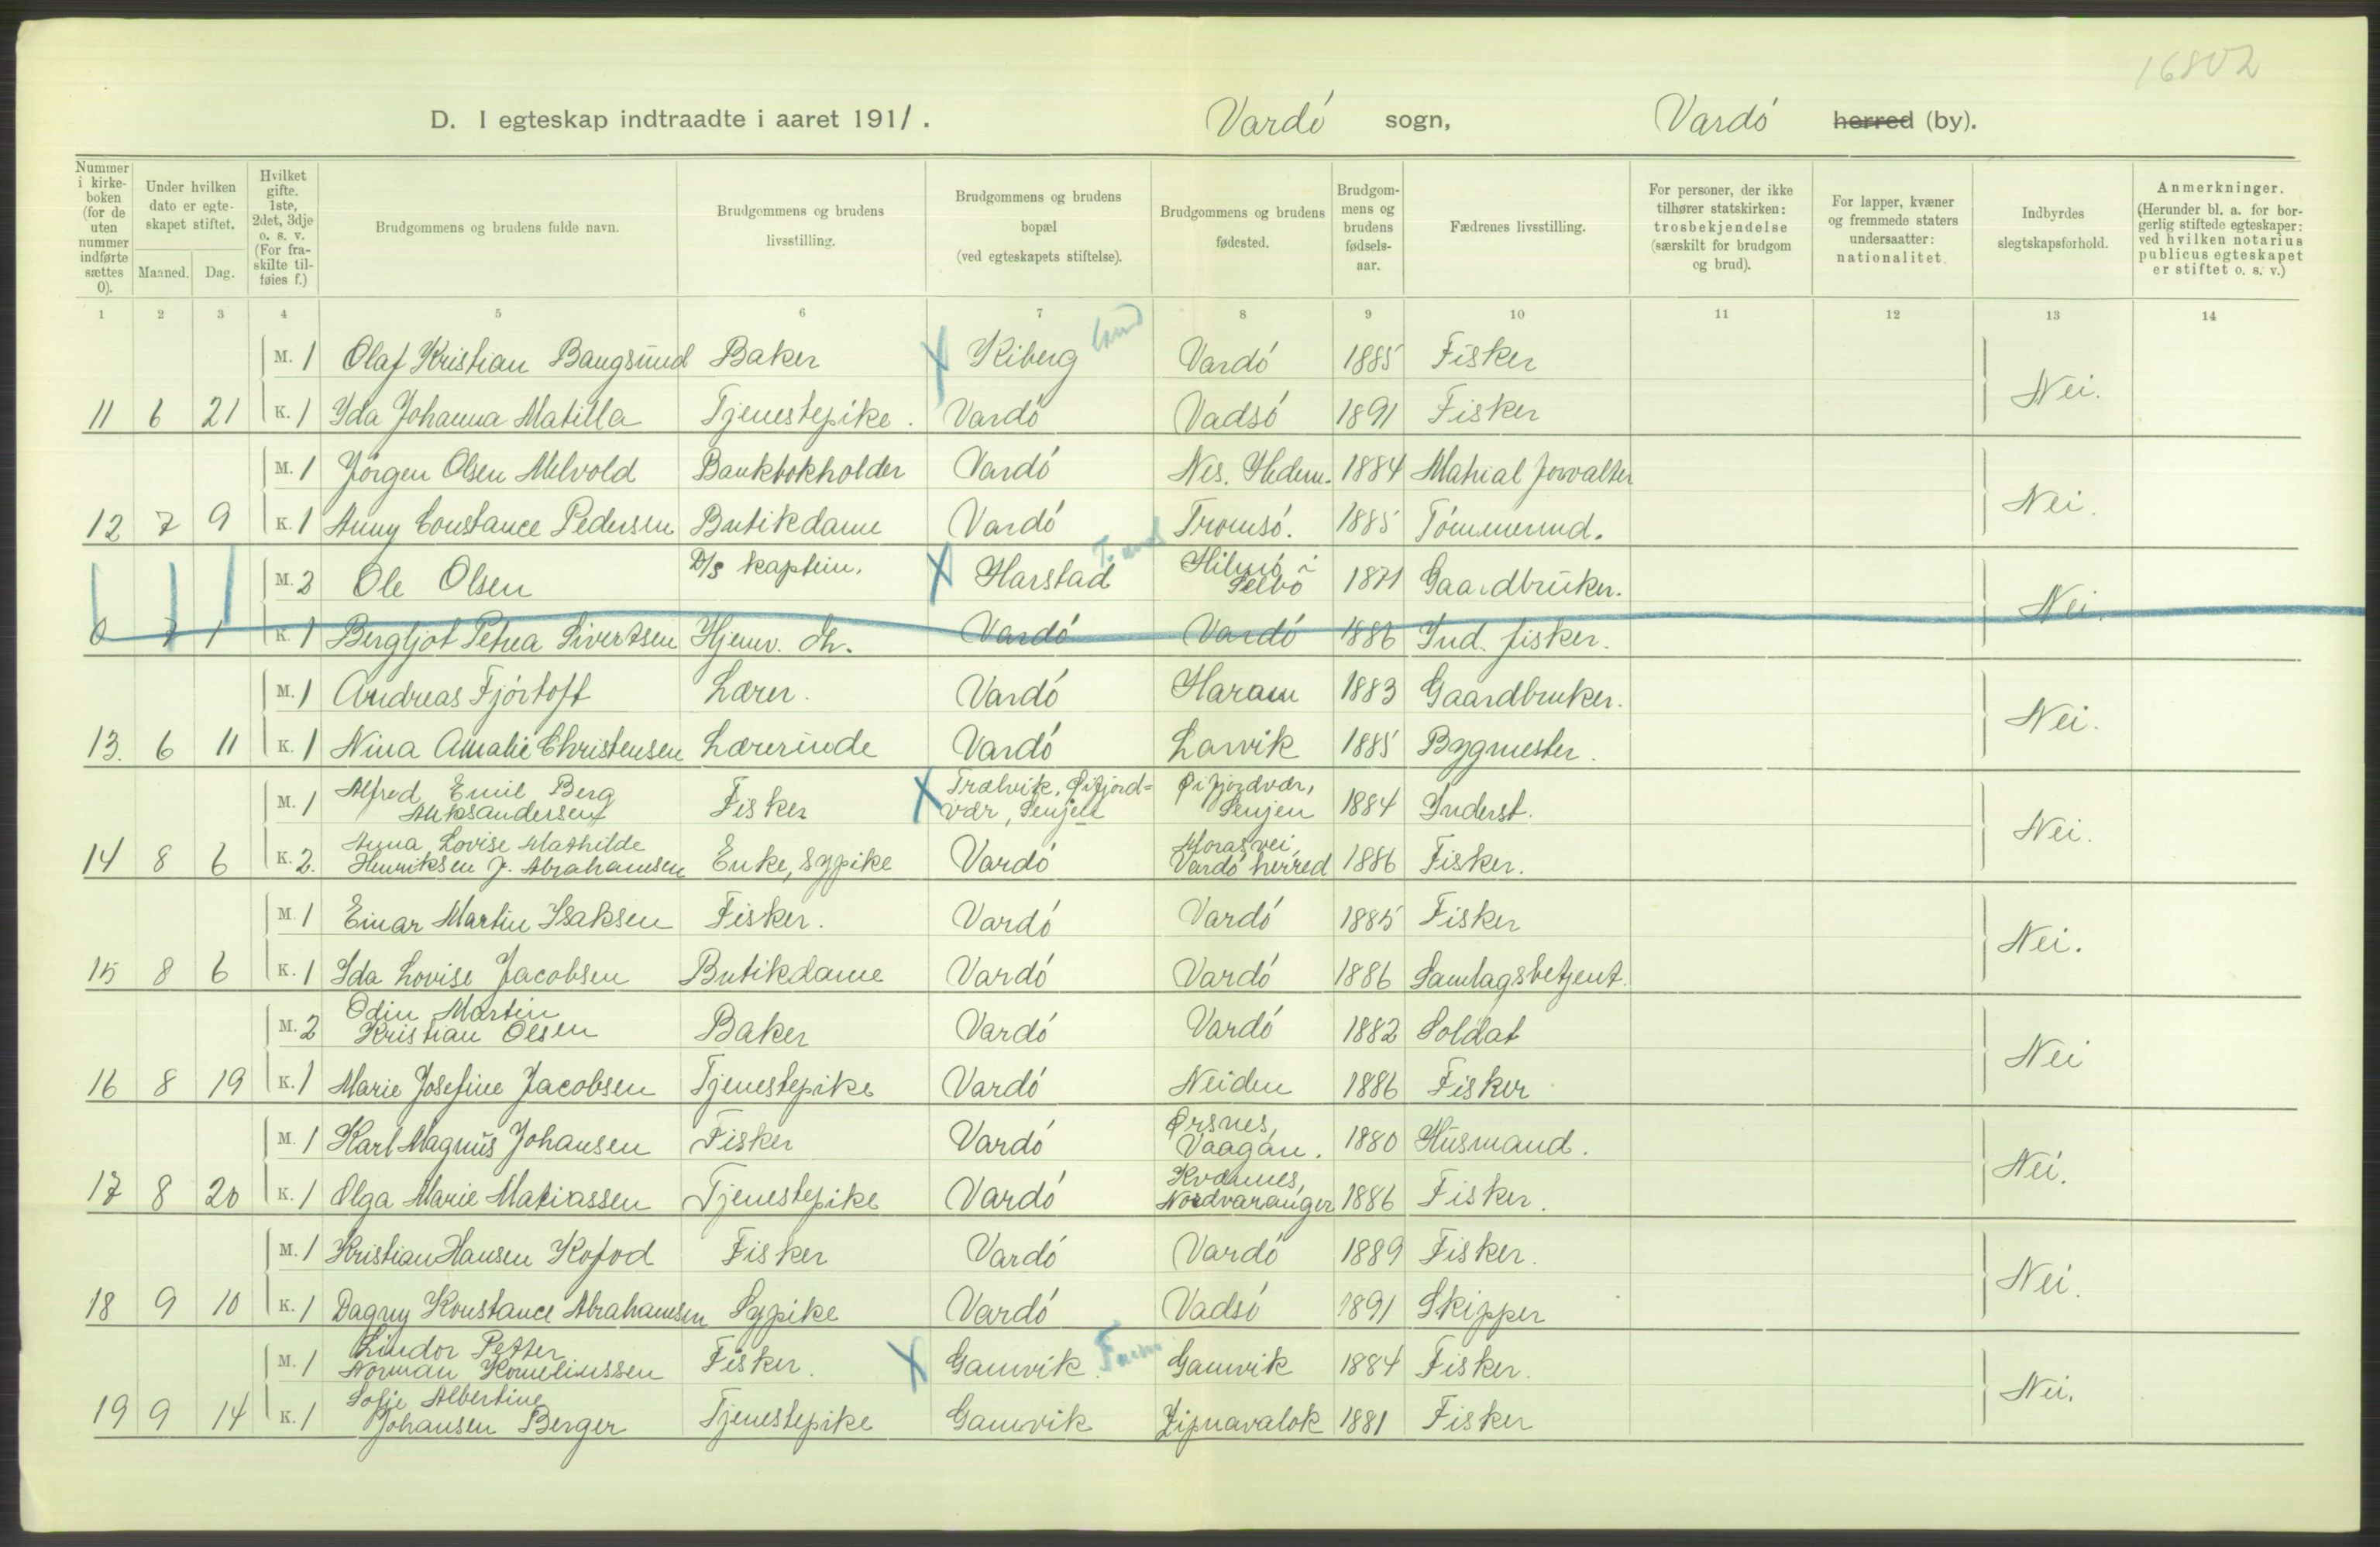 16802
D. I egteskap indtraadte i aaret 1911. Vardó sogn, Vardó herred (by).
Nummer i kirkeboken (for de uten nummer indførte sættes 0).
Under hvilken dato er egteskapet stiftet.
Maaned. Dag.
Hvilket gifte. 1ste, 2det, 3dje o. s. v. (For fraskilte tilføies f.)
Brudgommens og brudens fulde navn.
Brudgommens og brudens livsstilling.
Brudgommens og brudens bopæl (ved egteskapets stiftelse).
Brudgommens og brudens fødested.
Brudgommens og brudens fødselsaar.
Fædrenes livsstilling.
For personer, der ikke tilhører statskirken: trosbekjendelse (særskilt for brudgom og brud).
For lapper, kvæner og fremmede staters undersaatter: nationalitet.
Indbyrdes slegtskapsforhold.
Anmerkninger. (Herunder bl. a. for borgerlig stiftede egteskaper: ved hvilken notarius publicus egteskapet er stiftet o. s. v.)
1 2 3 4 5 6 7 8 9 10 11 12 13 14
M. 1 Olaf Kristian Bangsund Baker X Kiberg Vardó 1885 Fisker
Nei.
11 6 21 K. 1 Ida Johanna Matilla Tjenestepike. Vardó Vadsó 1891 Fisker
M. 1 Jórgen Olsen Melvold Bankbokholder Vardó Nes. Hedem. 1884 Matrial forvalter
Nei.
12 7 9 K. 1 Anny Constance Pedersen Butikdame Vardó Tromsó. 1885 Tómmermd.
M. 2 Ole Olsen D/S kaptein. X Harstad i Selbo 1871 Gaardbruker.
Nei.
0 7 1 K. 1 Bergljot Petrea Sivertsen Hjemv. dtr. Vardó Vardó 1886 Ind. fisker.
M. 1 Andreas Fjórtoft Lærer. Vardó Haram 1883 Gaardbruker.
Nei.
13. 6 11 K. 1 Nina Amalie Christensen Lærerinde Vardó Larvik 1885 Bygmester.
M. 1 Alfred Emil Berg Aleksandersen Fisker X Trælvik, Øifjordvær, Senjen Øifjordvær, Senjen 1884 Inderst.
Nei.
14 8 6 K. 2. Anna Lovise Mathilde Henriksen f. Abrahamsen Enke, sypike Vardó Vardó herred 1886 Fisker.
M. 1 Einar Martin Isaksen Fisker. Vardó Vardó 1885 Fisker
Nei.
15 8 6 K. 1 Ida Lovise Jacobsen Butikdame Vardó Vardó 1886 Samlagsbetjent.
M. 2 Odin Martin Kristian Olsen Baker Vardó Vardó 1882 Soldat
Nei
16 8 19 K. 1 Marie Josefine Jacobsen Tjenestepike Vardó Neiden 1886 Fisker
M. 1 Karl Magnus Johansen Fisker Vardó Ørsnes, Vaagan. 1880 Husmand.
Nei.
17 8 20 K. 1 Olga Marie Matiassen Tjenestepike Vardó Nordvaranger 1886 Fisker.
M. 1 Kristian Hansen Kofod Fisker Vardó Vardó 1889 Fisker.
Nei.
18 9 10 K. 1 Dagny Konstance Abrahamsen Sypike Vardó Vadsó 1891 Skipper
M. 1 Lindor Petter Norman Korneliussen Fisker. X Gamvik. Gamvik 1884 Fisker.
Nei.
19 9 14 K. 1 Sofie Albertine Johansen Berger Tjenestepike Gamvik Zipnavalok 1881 Fisker